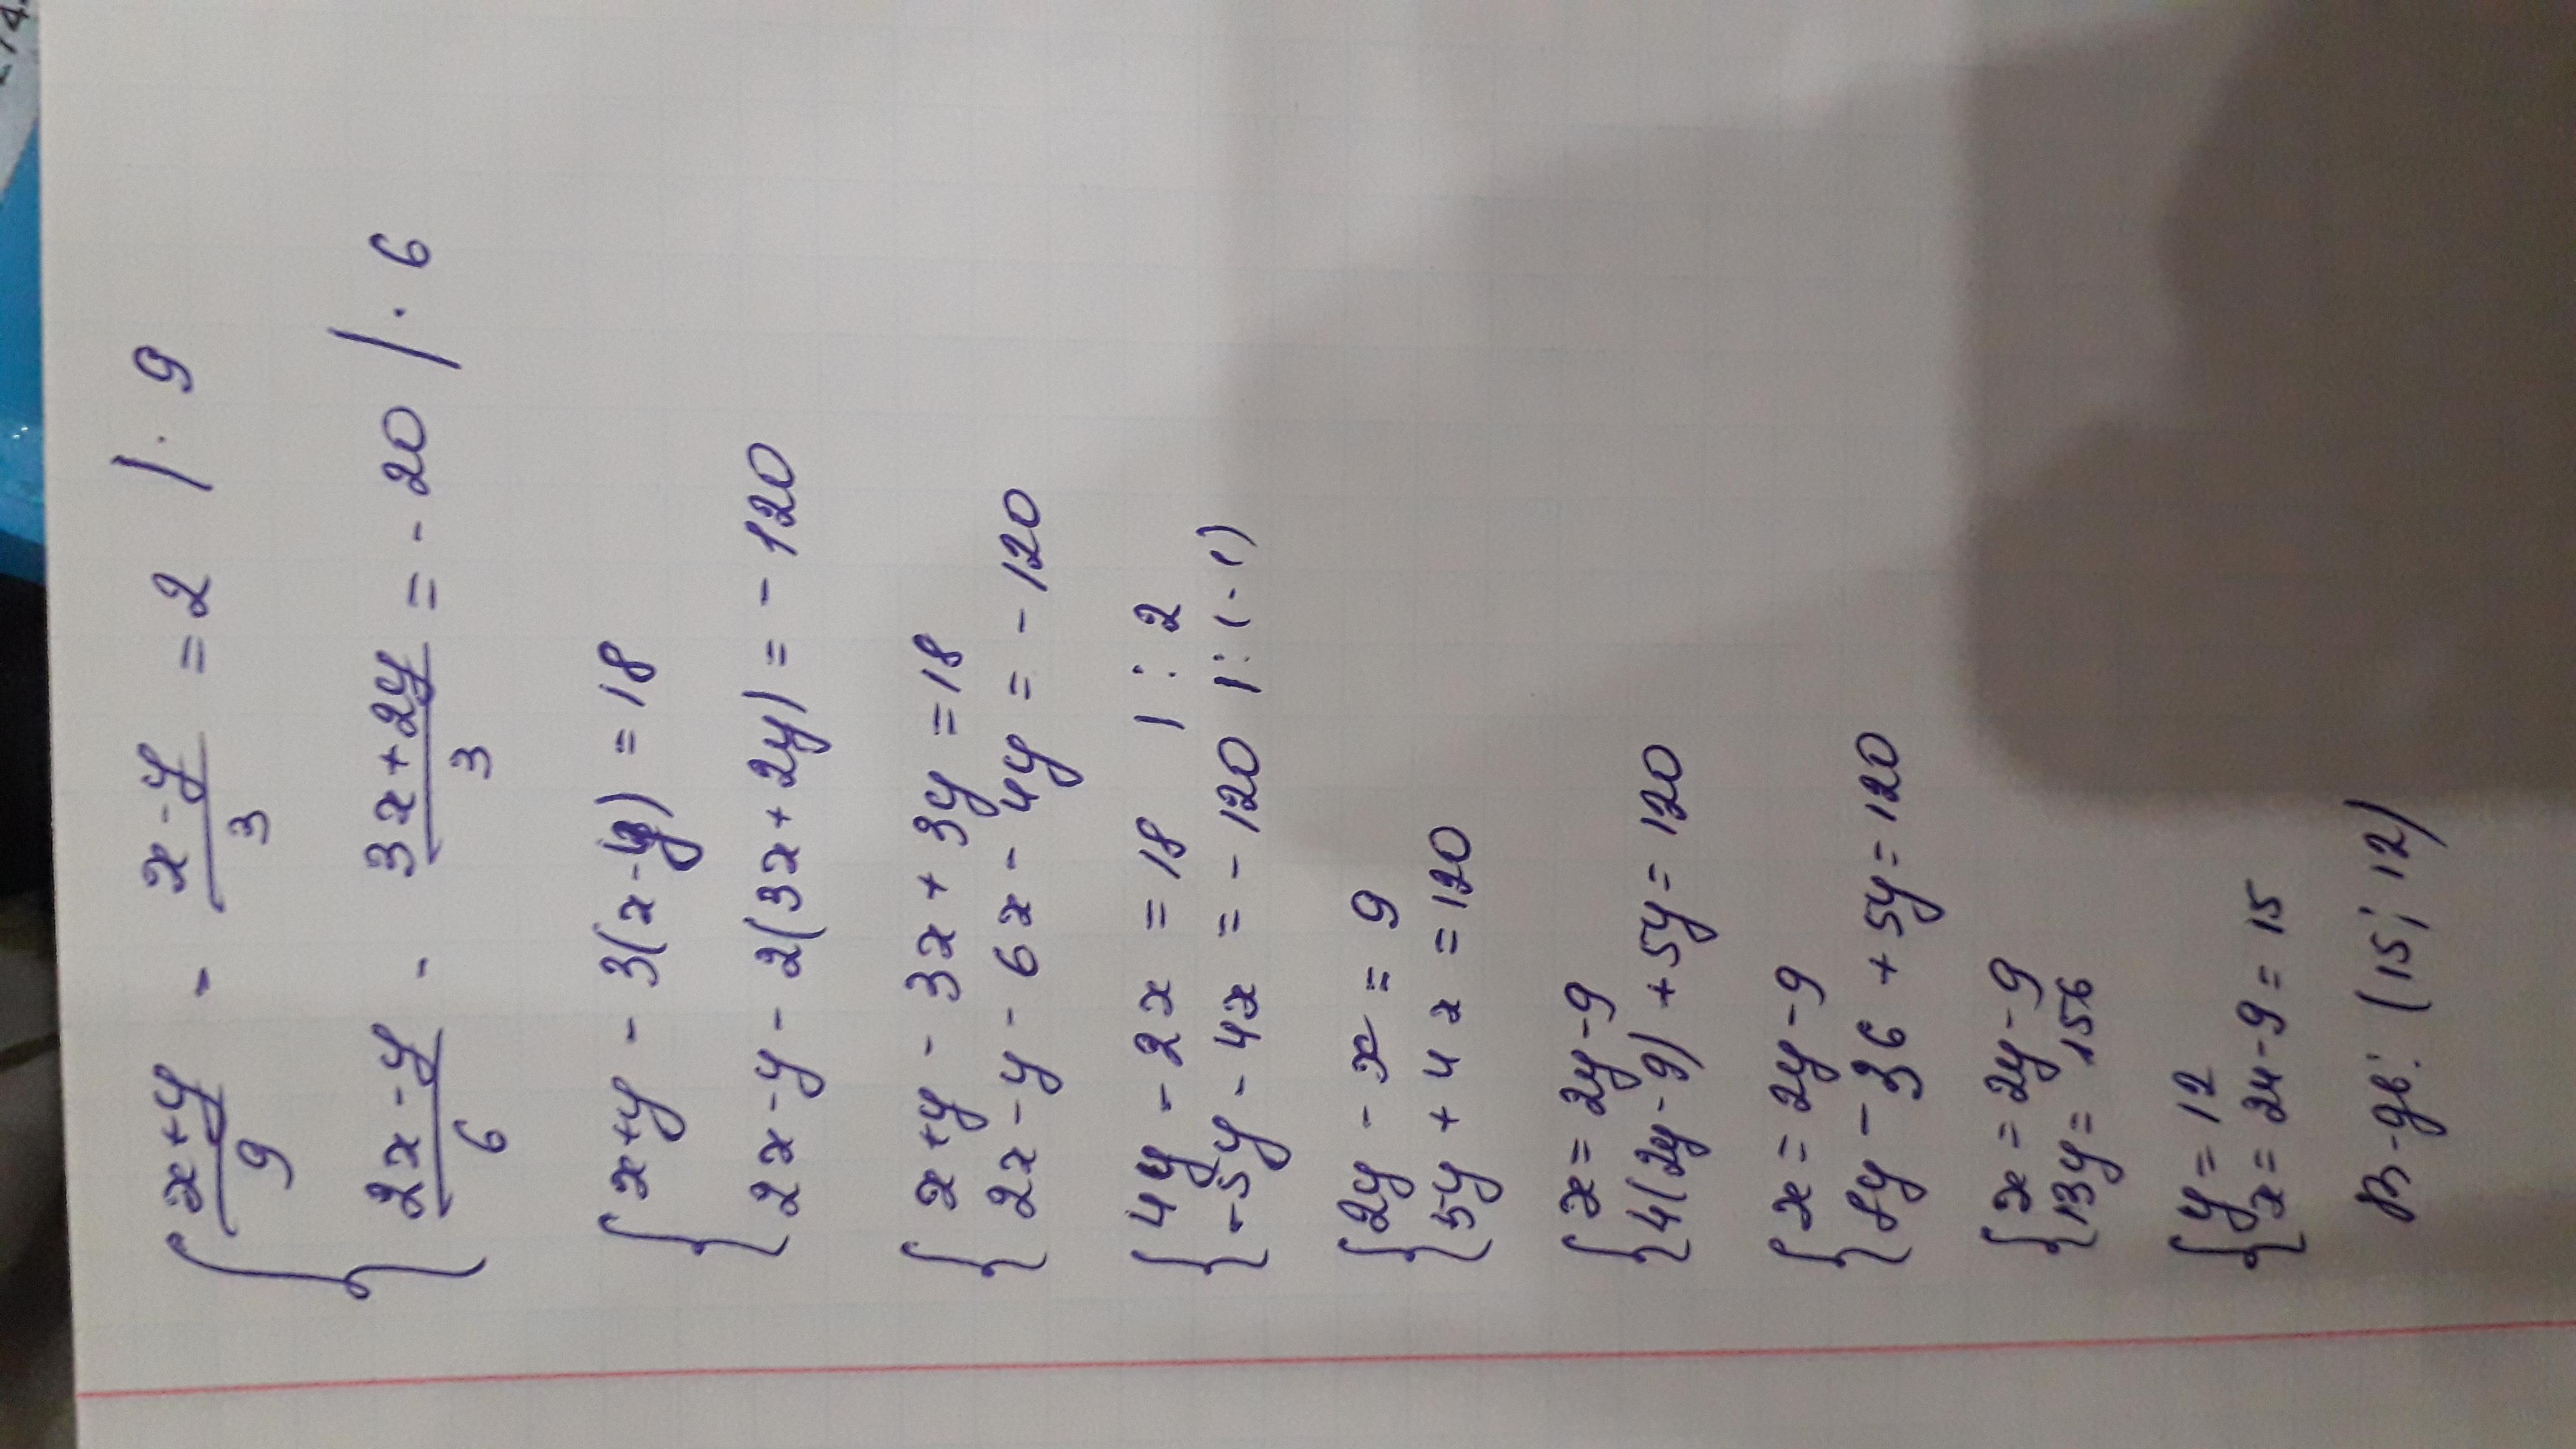 { x+y/9 - x-y/3 = 2 | · 9
2x-y/6 - 3x+2y/3 = -20 | · 6
{ x+y - 3(x-y) = 18
2x-y - 2(3x+2y) = -120
{ x+y - 3x+3y = 18
2x-y - 6x - 4y = -120
{ 4y - 2x = 18 | : 2
-5y - 4x = -120 | : (-1)
{ 2y - x = 9
5y + 4x = 120
{ x = 2y-9
4(2y-9) + 5y = 120
{ x = 2y-9
8y - 36 + 5y = 120
{ x = 2y-9
13y = 156
{ y = 12
x = 24-9 = 15
В-дь: (15; 12)